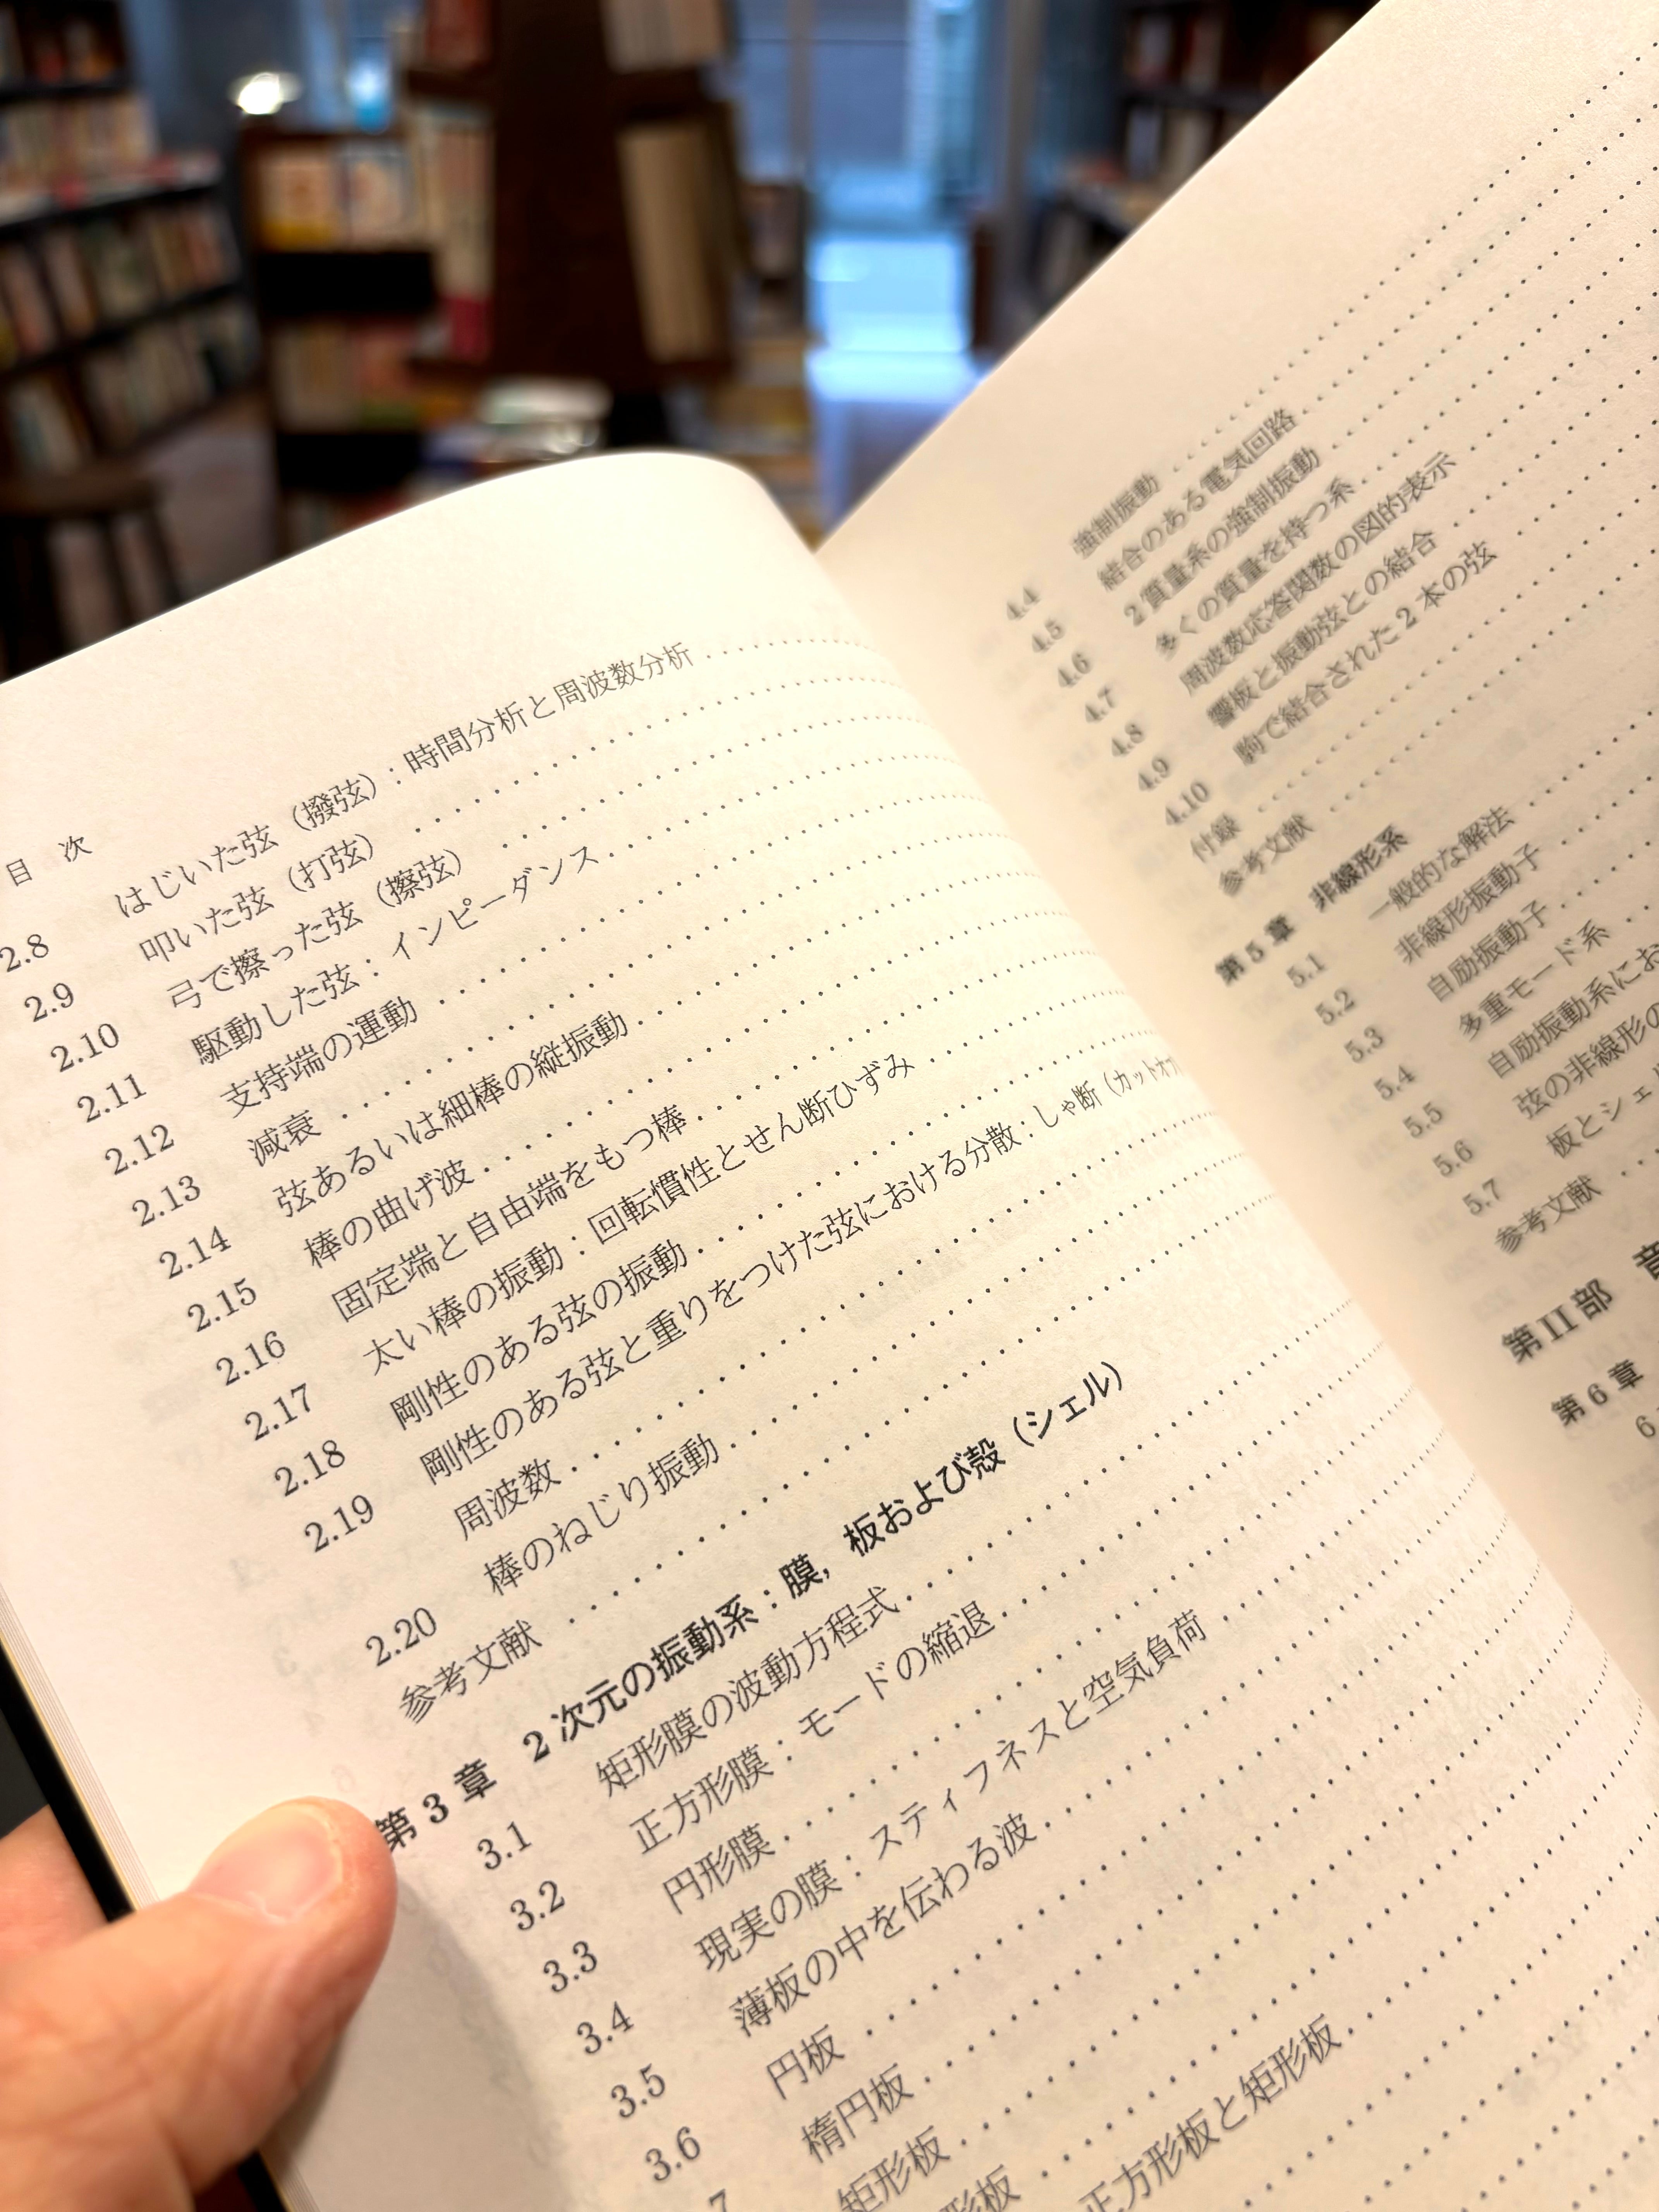 目 次
2.8 はじいた弦（撥弦）：時間分析と周波数分析
2.9 叩いた弦（打弦）
2.10 弓で擦った弦（擦弦）
2.11 駆動した弦：インピーダンス
2.12 支持端の運動
2.13 減衰
2.14 弦あるいは細棒の縦振動
2.15 棒の曲げ波
2.16 固定端と自由端をもつ棒
2.17 太い棒の振動：回転慣性とせん断ひずみ
2.18 剛性のある弦の振動
2.19 剛性のある弦と重りをつけた弦における分散：しゃ断（カットオフ
周波数
2.20 棒のねじり振動
参考文献
第 3 章 2 次元の振動系：膜，板および殻（シェル）
3.1 矩形膜の波動方程式
3.2 正方形膜：モードの縮退
3.3 円形膜
3.4 現実の膜：スティフネスと空気負荷
3.5 薄板の中を伝わる波
3.6 円板
7 楕円板
矩形板
形板
正方形板と矩形板
4.4 強制振動
4.5 結合のある電気回路
4.6 2 質量系の強制振動
4.7 多くの質量を持つ系
4.8 周波数応答関数の図的表示
4.9 響板と振動弦との結合
4.10 駒で結合された 2 本の弦
付録
参考文献
第 5 章 非線形系
5.1 一般的な解法
5.2 非線形振動子
5.3 自励振動子
5.4 多重モード系
5.5 自励振動系にお
5.6 弦の非線形の
5.7 板とシェル
参考文献
第 II 部 音
第 6 章
6